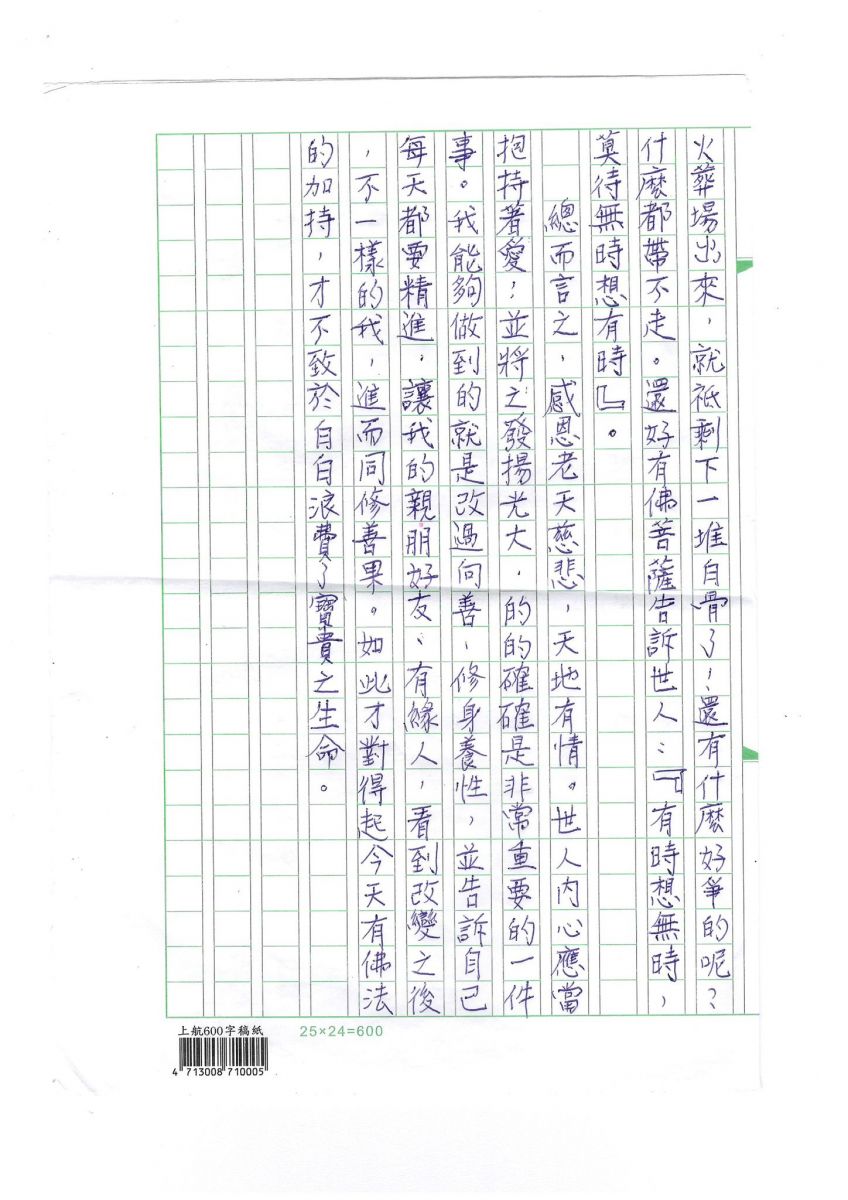 火葬場出來，就祗剩下一堆自骨了，還有什麼好爭的呢？
什麼都帶不走。還好有佛菩薩告訴世人：『有時想無時，
莫待無時想有時』。
總而言之，感恩老天慈悲，天地有情。世人內心應當
抱持著愛，並將之發揚光大，的的確確是非常重要的一件
事。我能夠做到的就是改過向善、修身養性，並告訴自己
每天都要精進，讓我的親朋好友、有緣人，看到改變之後
，不一樣的我，進而同修善果。如此才對得起今天有佛法
的加持，才不致於自自浪費了寶貴之生命。
上航600字稿紙
25×24=600
4 713008 710005